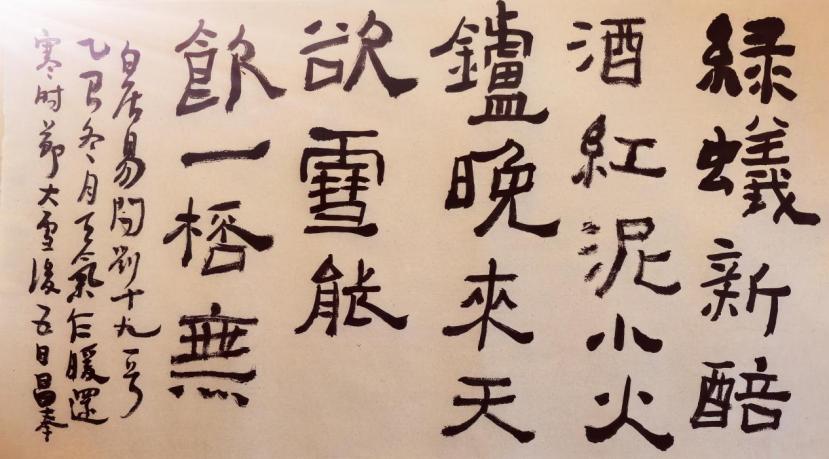 緑蟻新醅
酒紅泥小火
鑪晚來天
欲雪能
飲一桮無
白居易問劉十九
乙巳冬月天氣乍暖還
寒时節大雪後五日昌奉